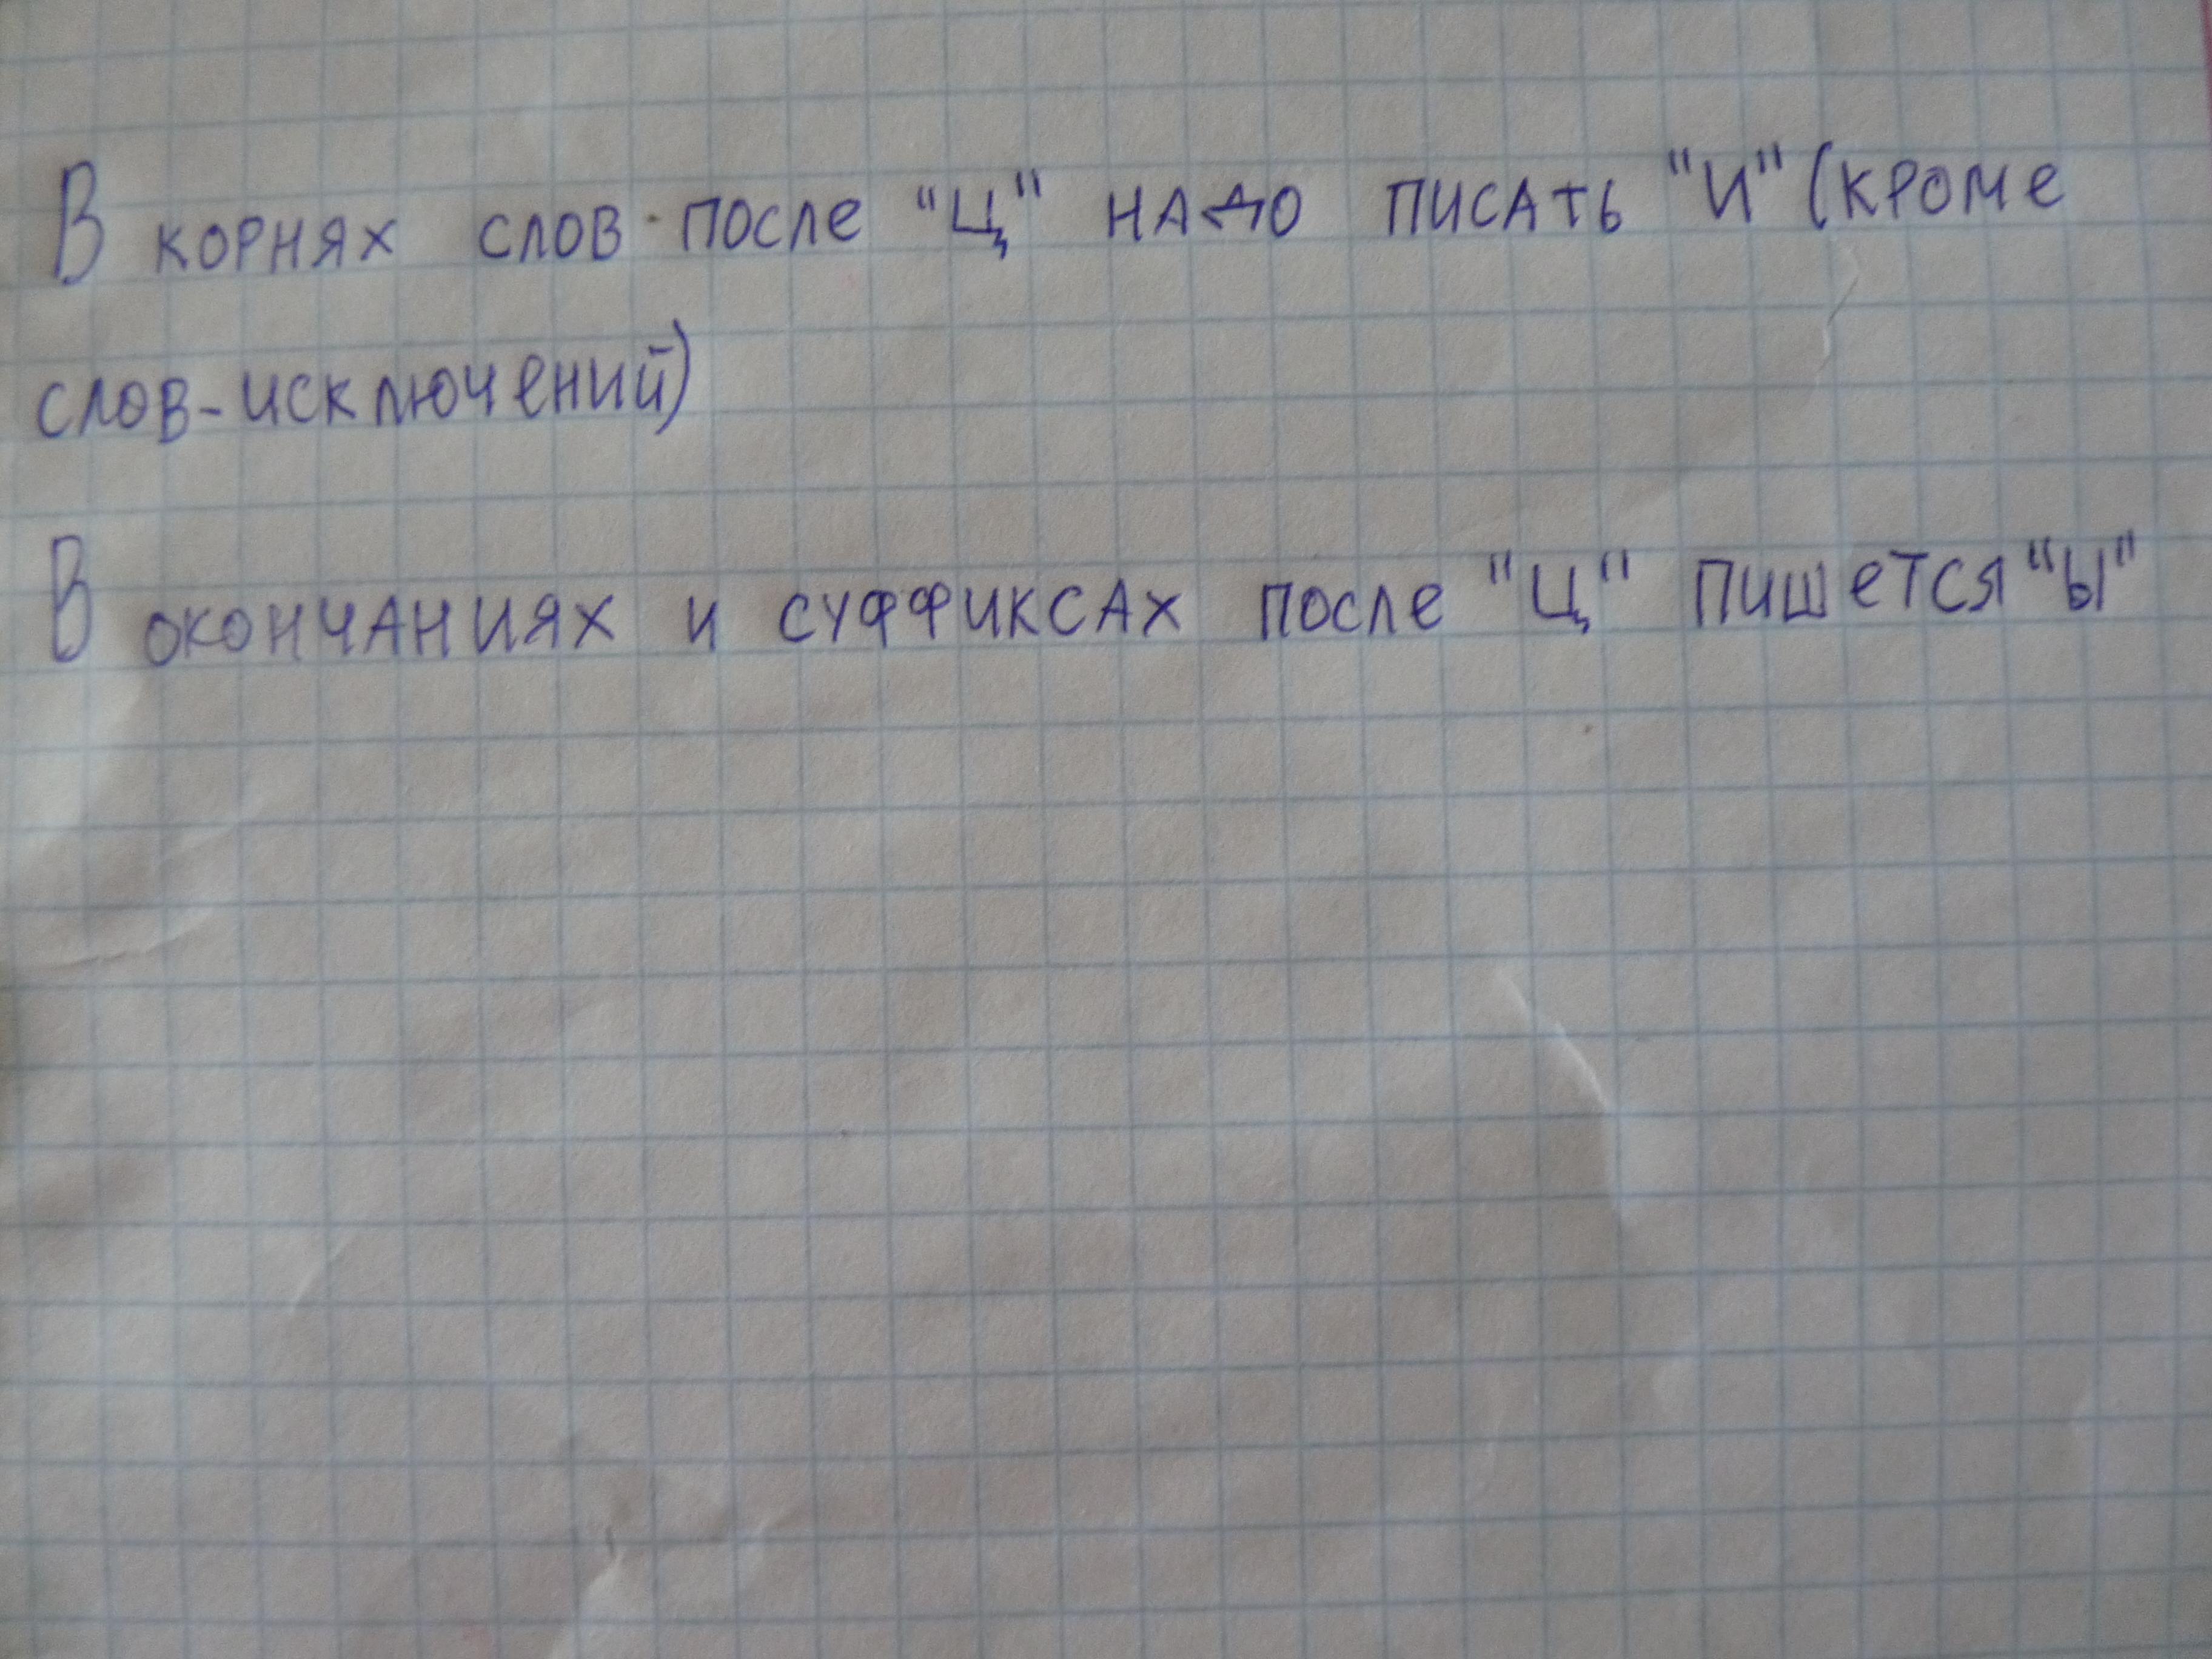 В корнях слов после "Ц" надо писать "И" (кроме
слов-исключений)
В окончаниях и суффиксах после "Ц" пишется "Ы"